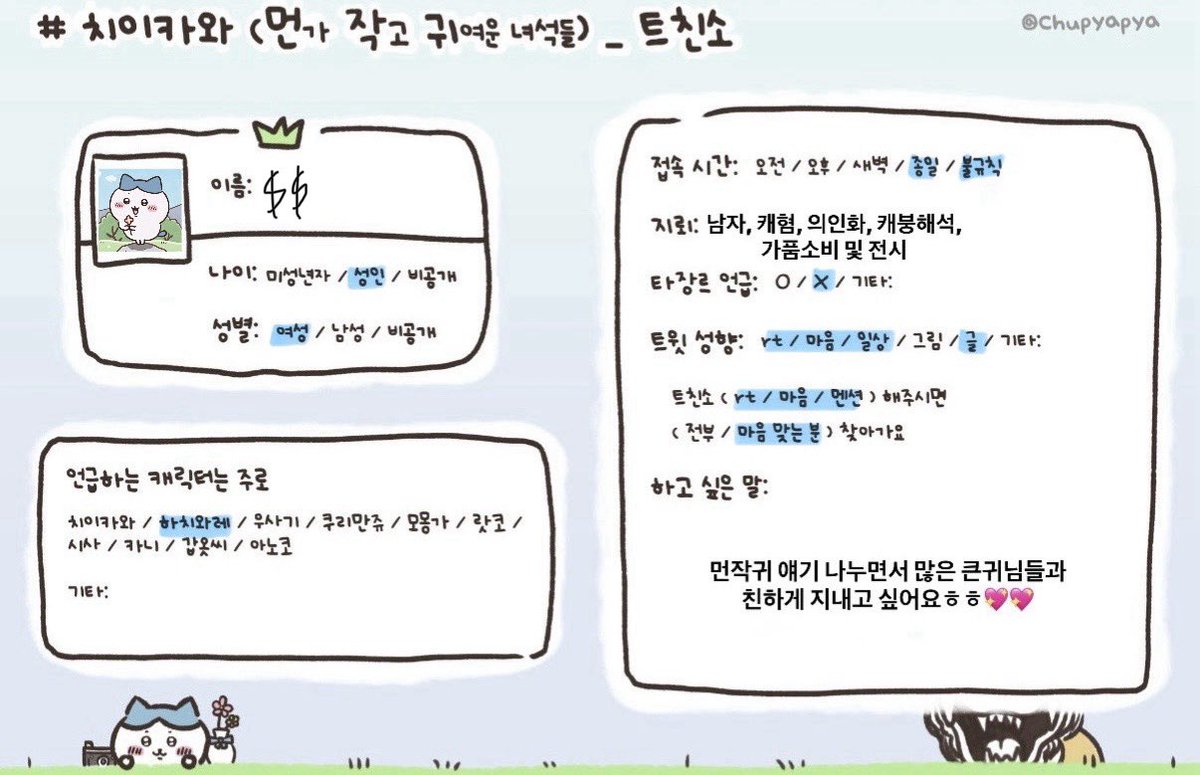 # 치이카와 (먼가 작고 귀여운 녀석들) _ 트친소
@Chupyapya
이름: $$
나이: 미성년자 / 성인 / 비공개
성별: 여성 / 남성 / 비공개
언급하는 캐릭터는 주로
치이카와 / 하치와레 / 우사기 / 쿠리만쥬 / 모몽가 / 랏코 /
시사 / 카니 / 갑옷씨 / 아노코
기타:
접속 시간: 오전 / 오후 / 새벽 / 종일 / 불규칙
지뢰: 남자, 캐혐, 의인화, 캐붕해석,
가품소비 및 전시
타장르 언급: O / X / 기타:
트윗 성향: rt / 마음 / 일상 / 그림 / 글 / 기타:
트친소 ( rt / 마음 / 멘션 ) 해주시면
( 전부 / 마음 맞는 분 ) 찾아가요
하고 싶은 말:
먼작귀 얘기 나누면서 많은 큰귀님들과
친하게 지내고 싶어요ㅎㅎ💖💖